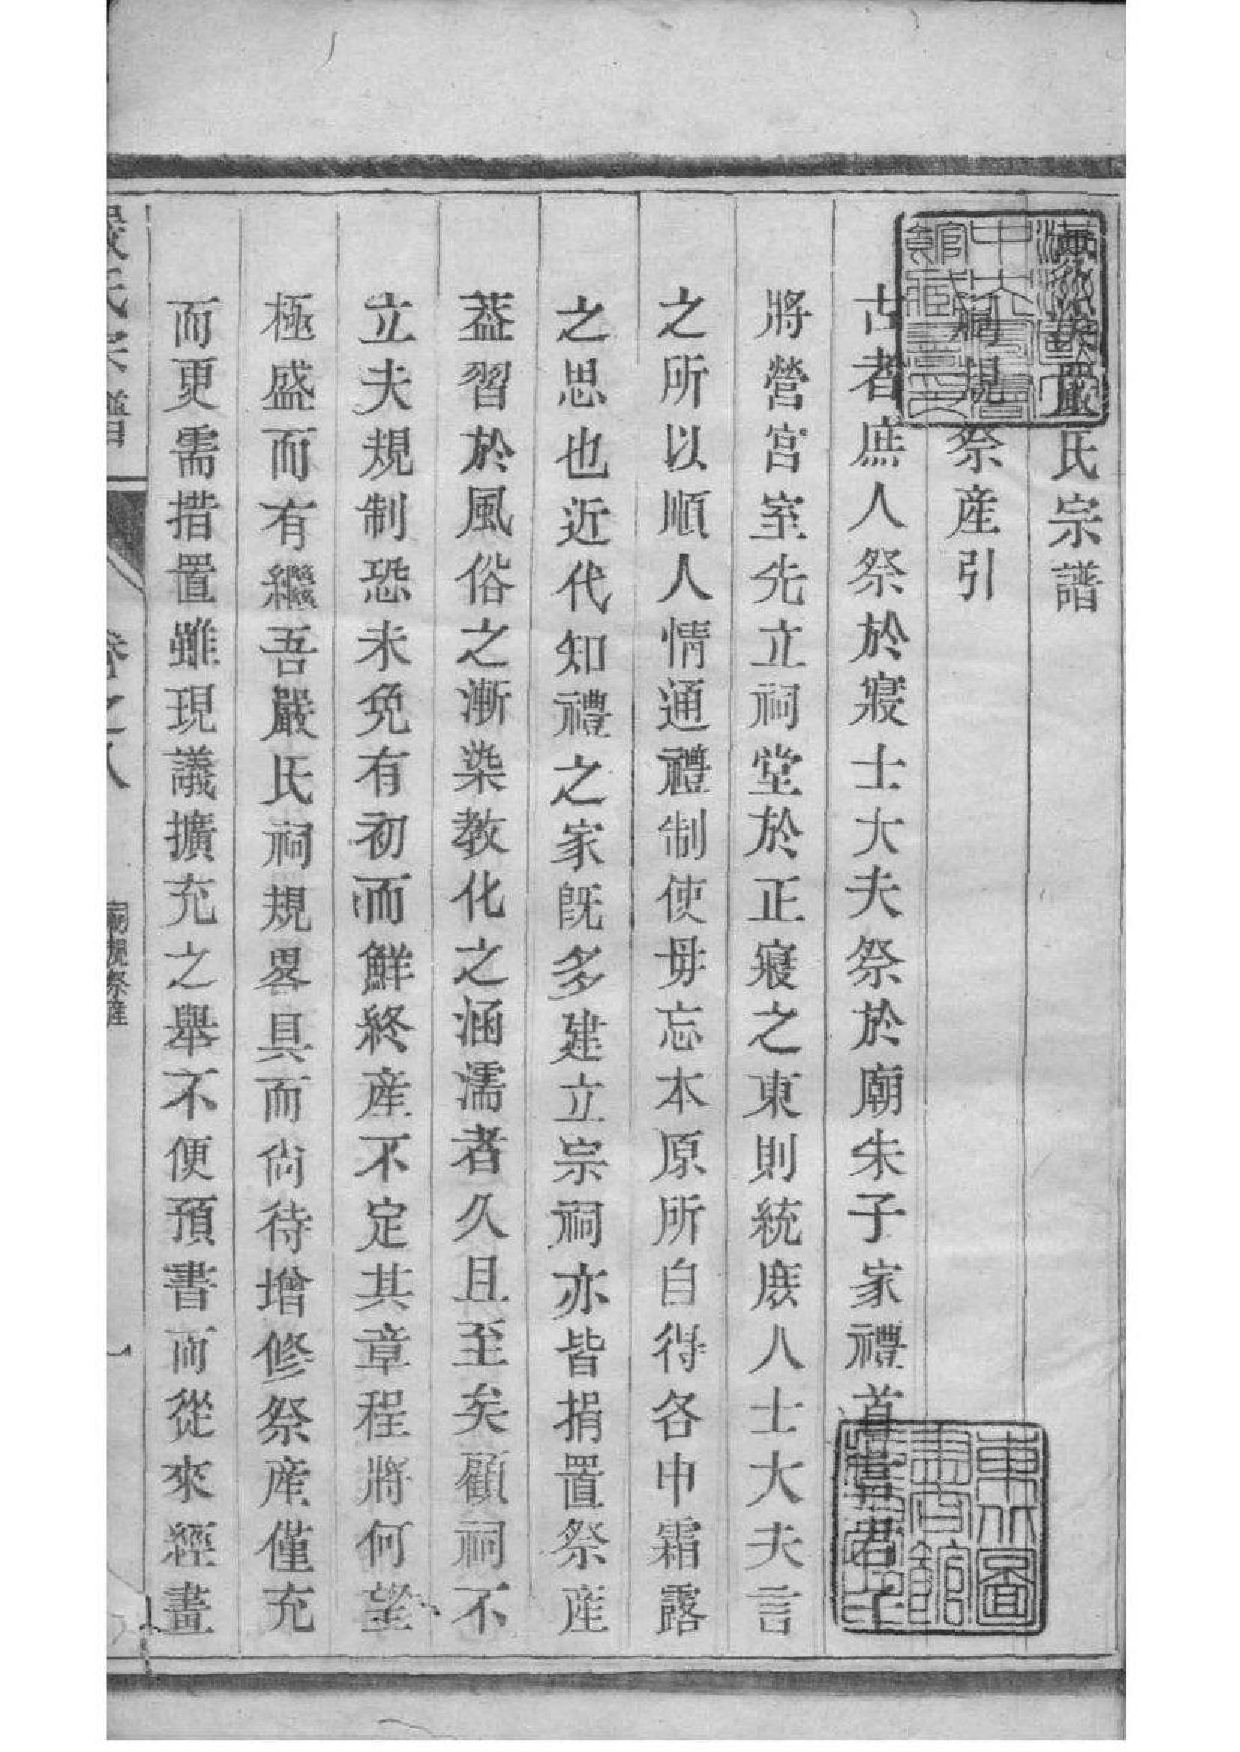 嚴氏宗譜
祠規祭產引
古者庶人祭於寢士大夫祭於廟朱子家禮首言君子
將營宮室先立祠堂於正寢之東則統庶人士大夫言
之所以順人情通禮制使毋忘本原所自得各申霜露
之思也近代知禮之家旣多建立宗祠亦皆捐置祭産
葢習於風俗之漸染教化之涵濡者久且至矣顧祠不
立夫規制恐未免有初而鮮終産不定其章程將何望
極盛而有繼吾嚴氏祠規畧具而尙待增修祭産僅充
而更需措置雖現議擴充之舉不便預書而從來經畫
嚴氏宗譜
卷之八
祠規祭産
一